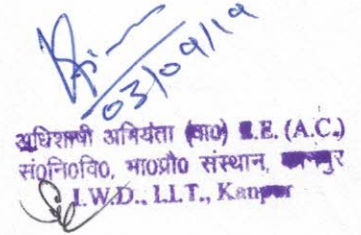 03/09/19
अधिशाषी अभियंता (वा०) E.E. (A.C.)
सं०नि०वि०, भा०प्रौ० संस्थान, कानपुर
I.W.D., I.I.T., Kanpur